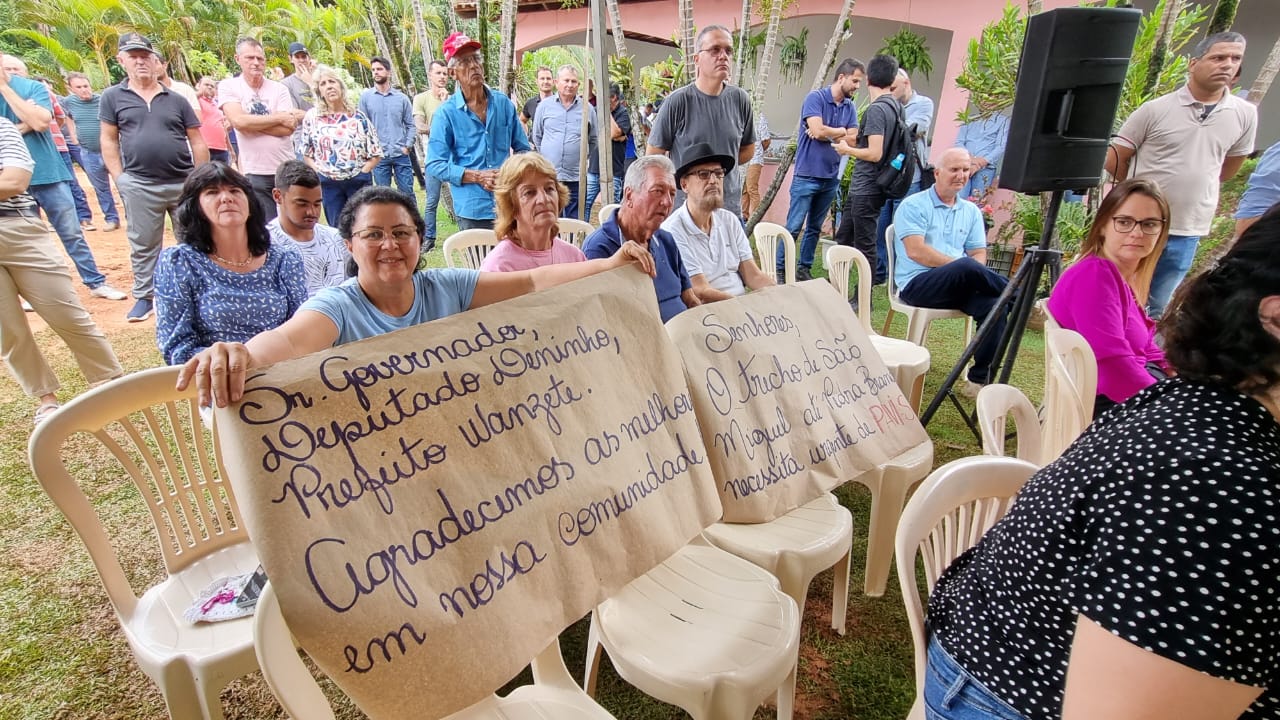 Sr. Governador,
Deputado Deninho,
Prefeito Wanzete.
Agradecemos as melhori
em nossa comunidade
Senhores,
O trecho de São
Miguel até Rana
necessita urgente de PAVIS